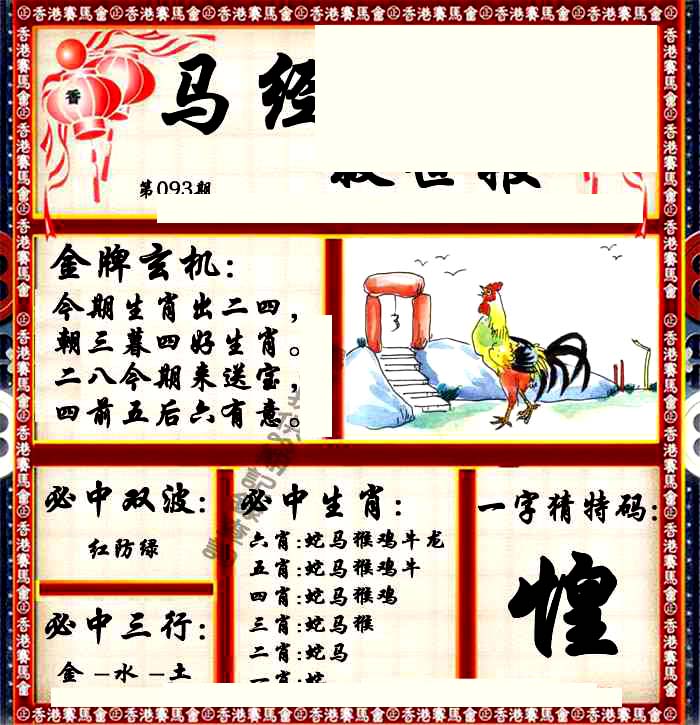 ㊣香港賽馬會㊣香港賽馬會㊣香港賽馬會㊣香港賽馬會㊣香港賽馬會㊣香港賽馬會㊣
香
马经
第093期
金牌玄机:
今期生肖出二四,
朝三暮四好生肖。
二八今期来送宝,
四前五后六有意。
必中双波:
红防绿
必中三行:
金-水-土
必中生肖:
六肖:蛇马猴鸡牛龙
五肖:蛇马猴鸡牛
四肖:蛇马猴鸡
三肖:蛇马猴
二肖:蛇马
一肖:蛇
一字猜特码:
惶
㊣香港賽馬會㊣香港賽馬會㊣香港賽馬會㊣香港賽馬會㊣香港賽馬會㊣香港賽馬會㊣